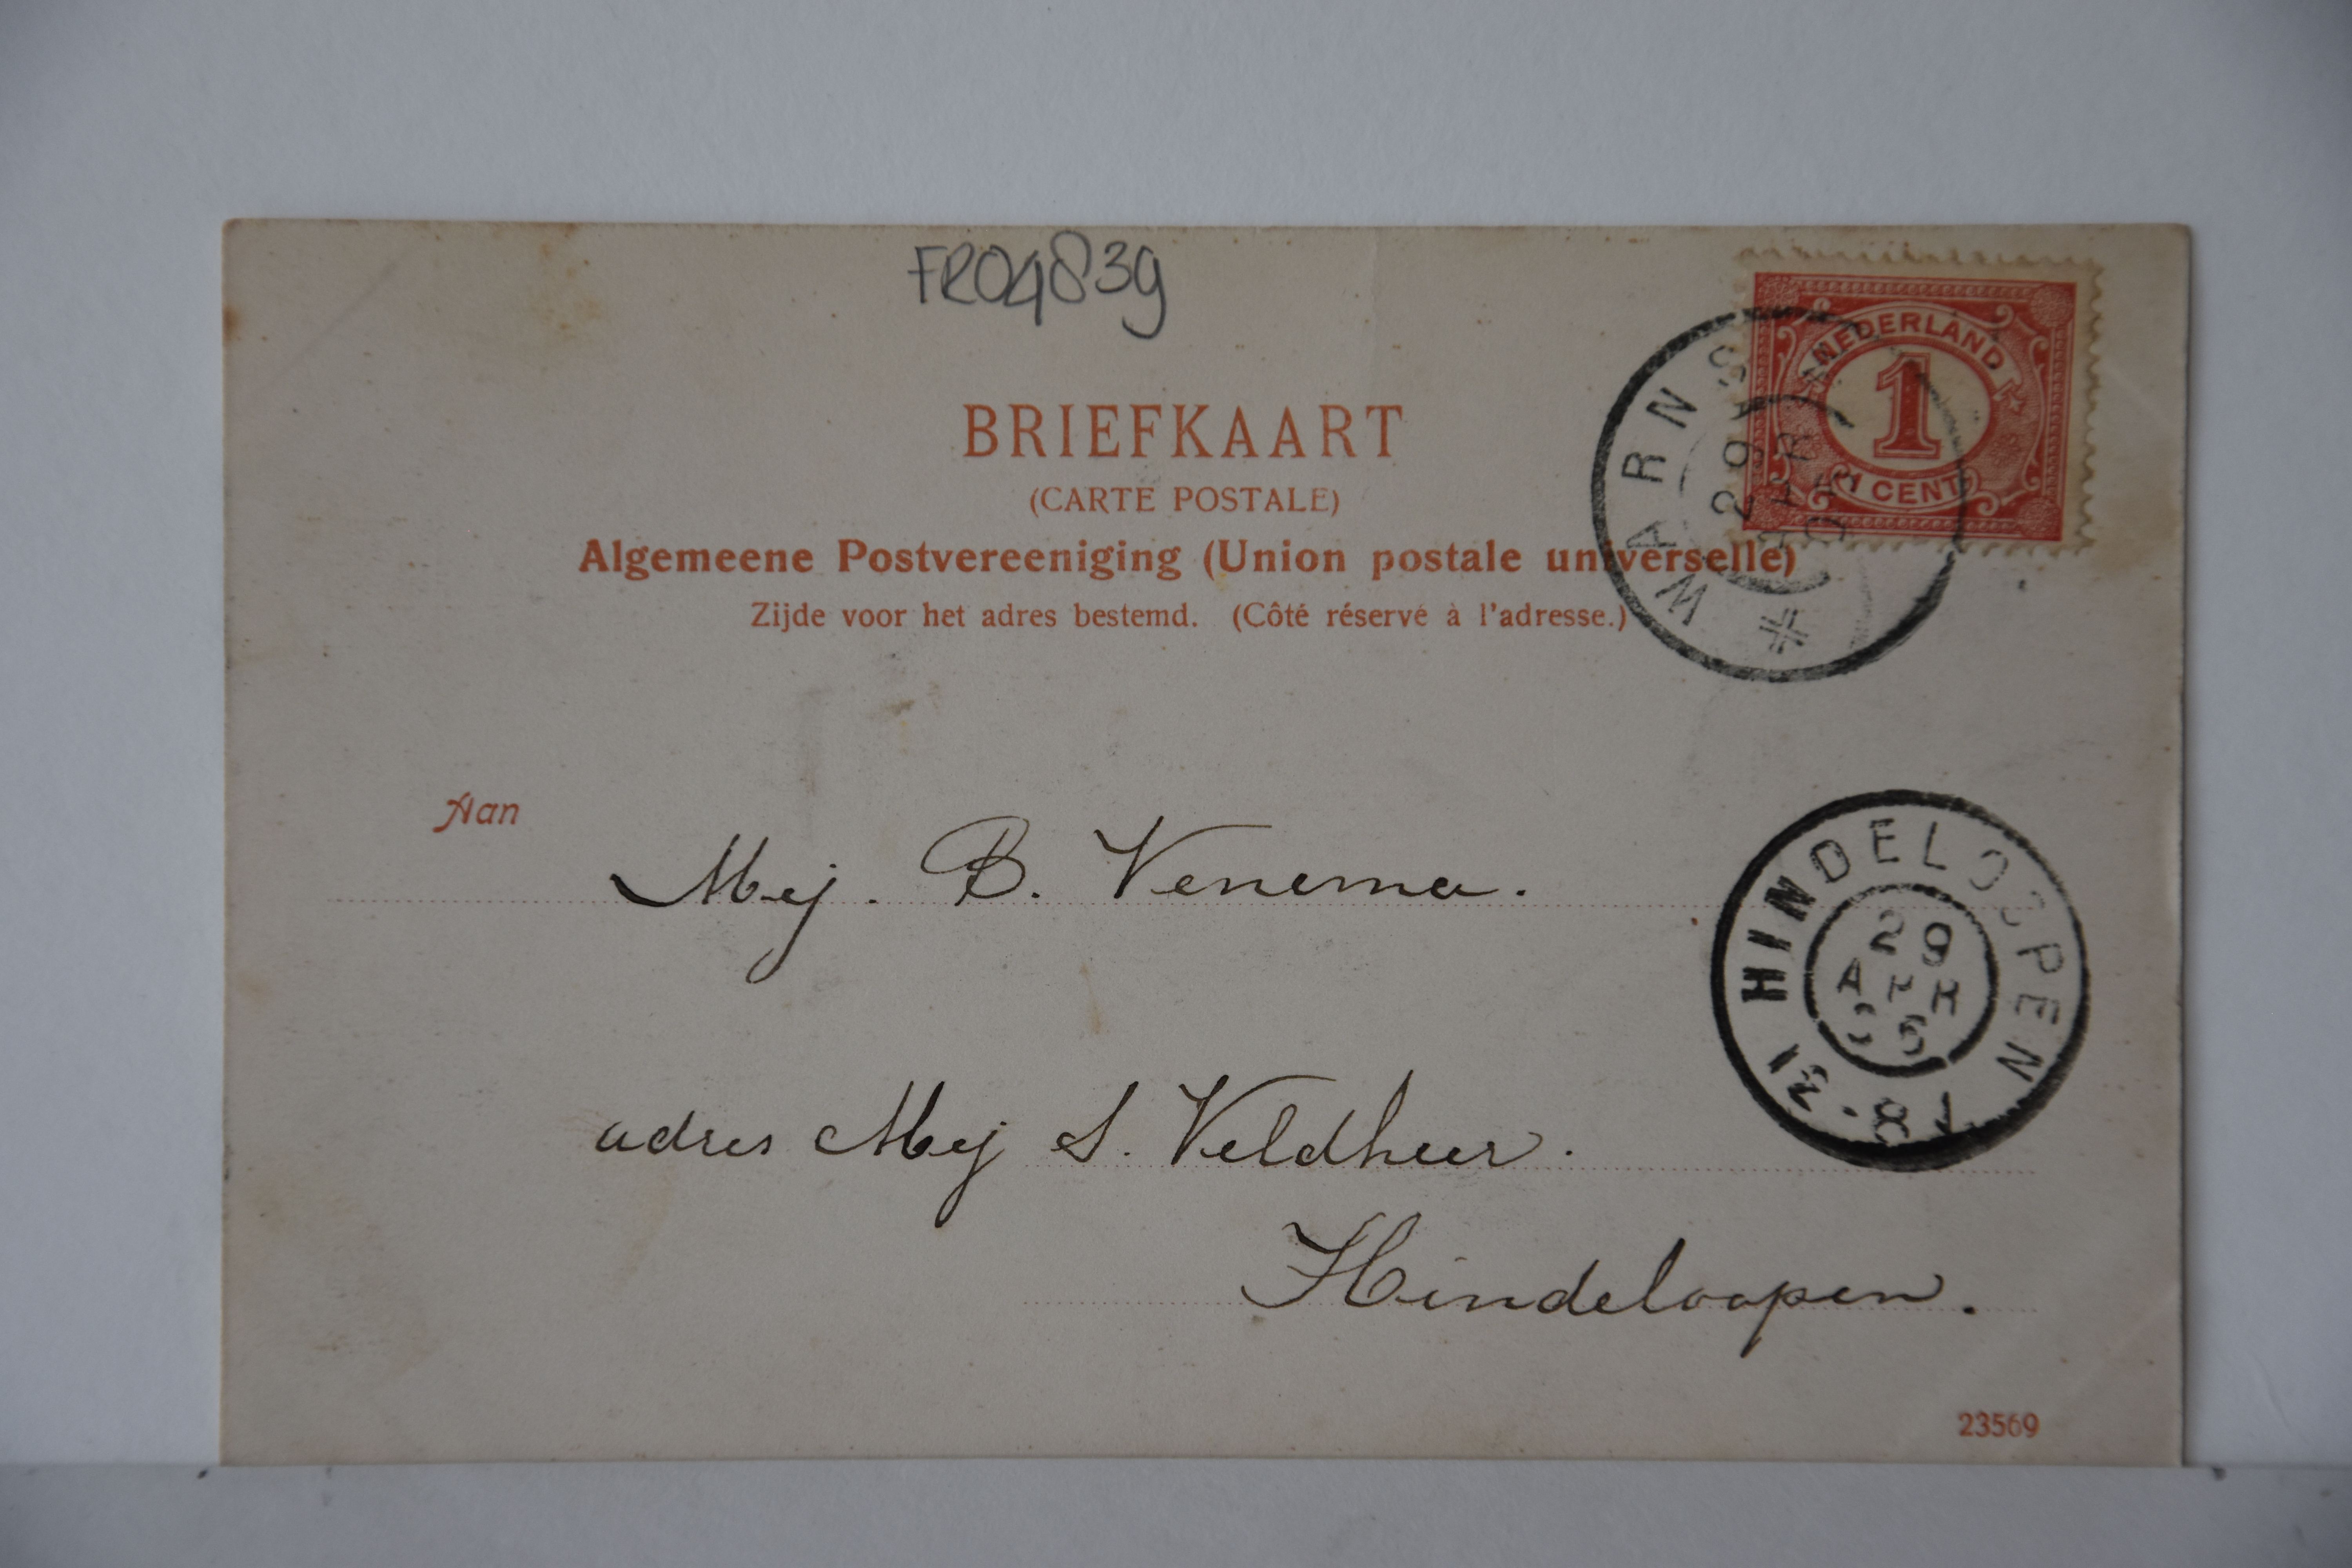 FR04839
NEDERLAND
1
1 CENT
WARNS
29
APR
BRIEFKAART
(CARTE POSTALE)
Algemeene Postvereeniging (Union postale universelle)
Zijde voor het adres bestemd. (Côté réservé à l'adresse.)
Aan
Mej. B. Venema.
HINDELOOPEN
29
APR
adres Mej S. Veldheer.
Hindeloopen.
23569